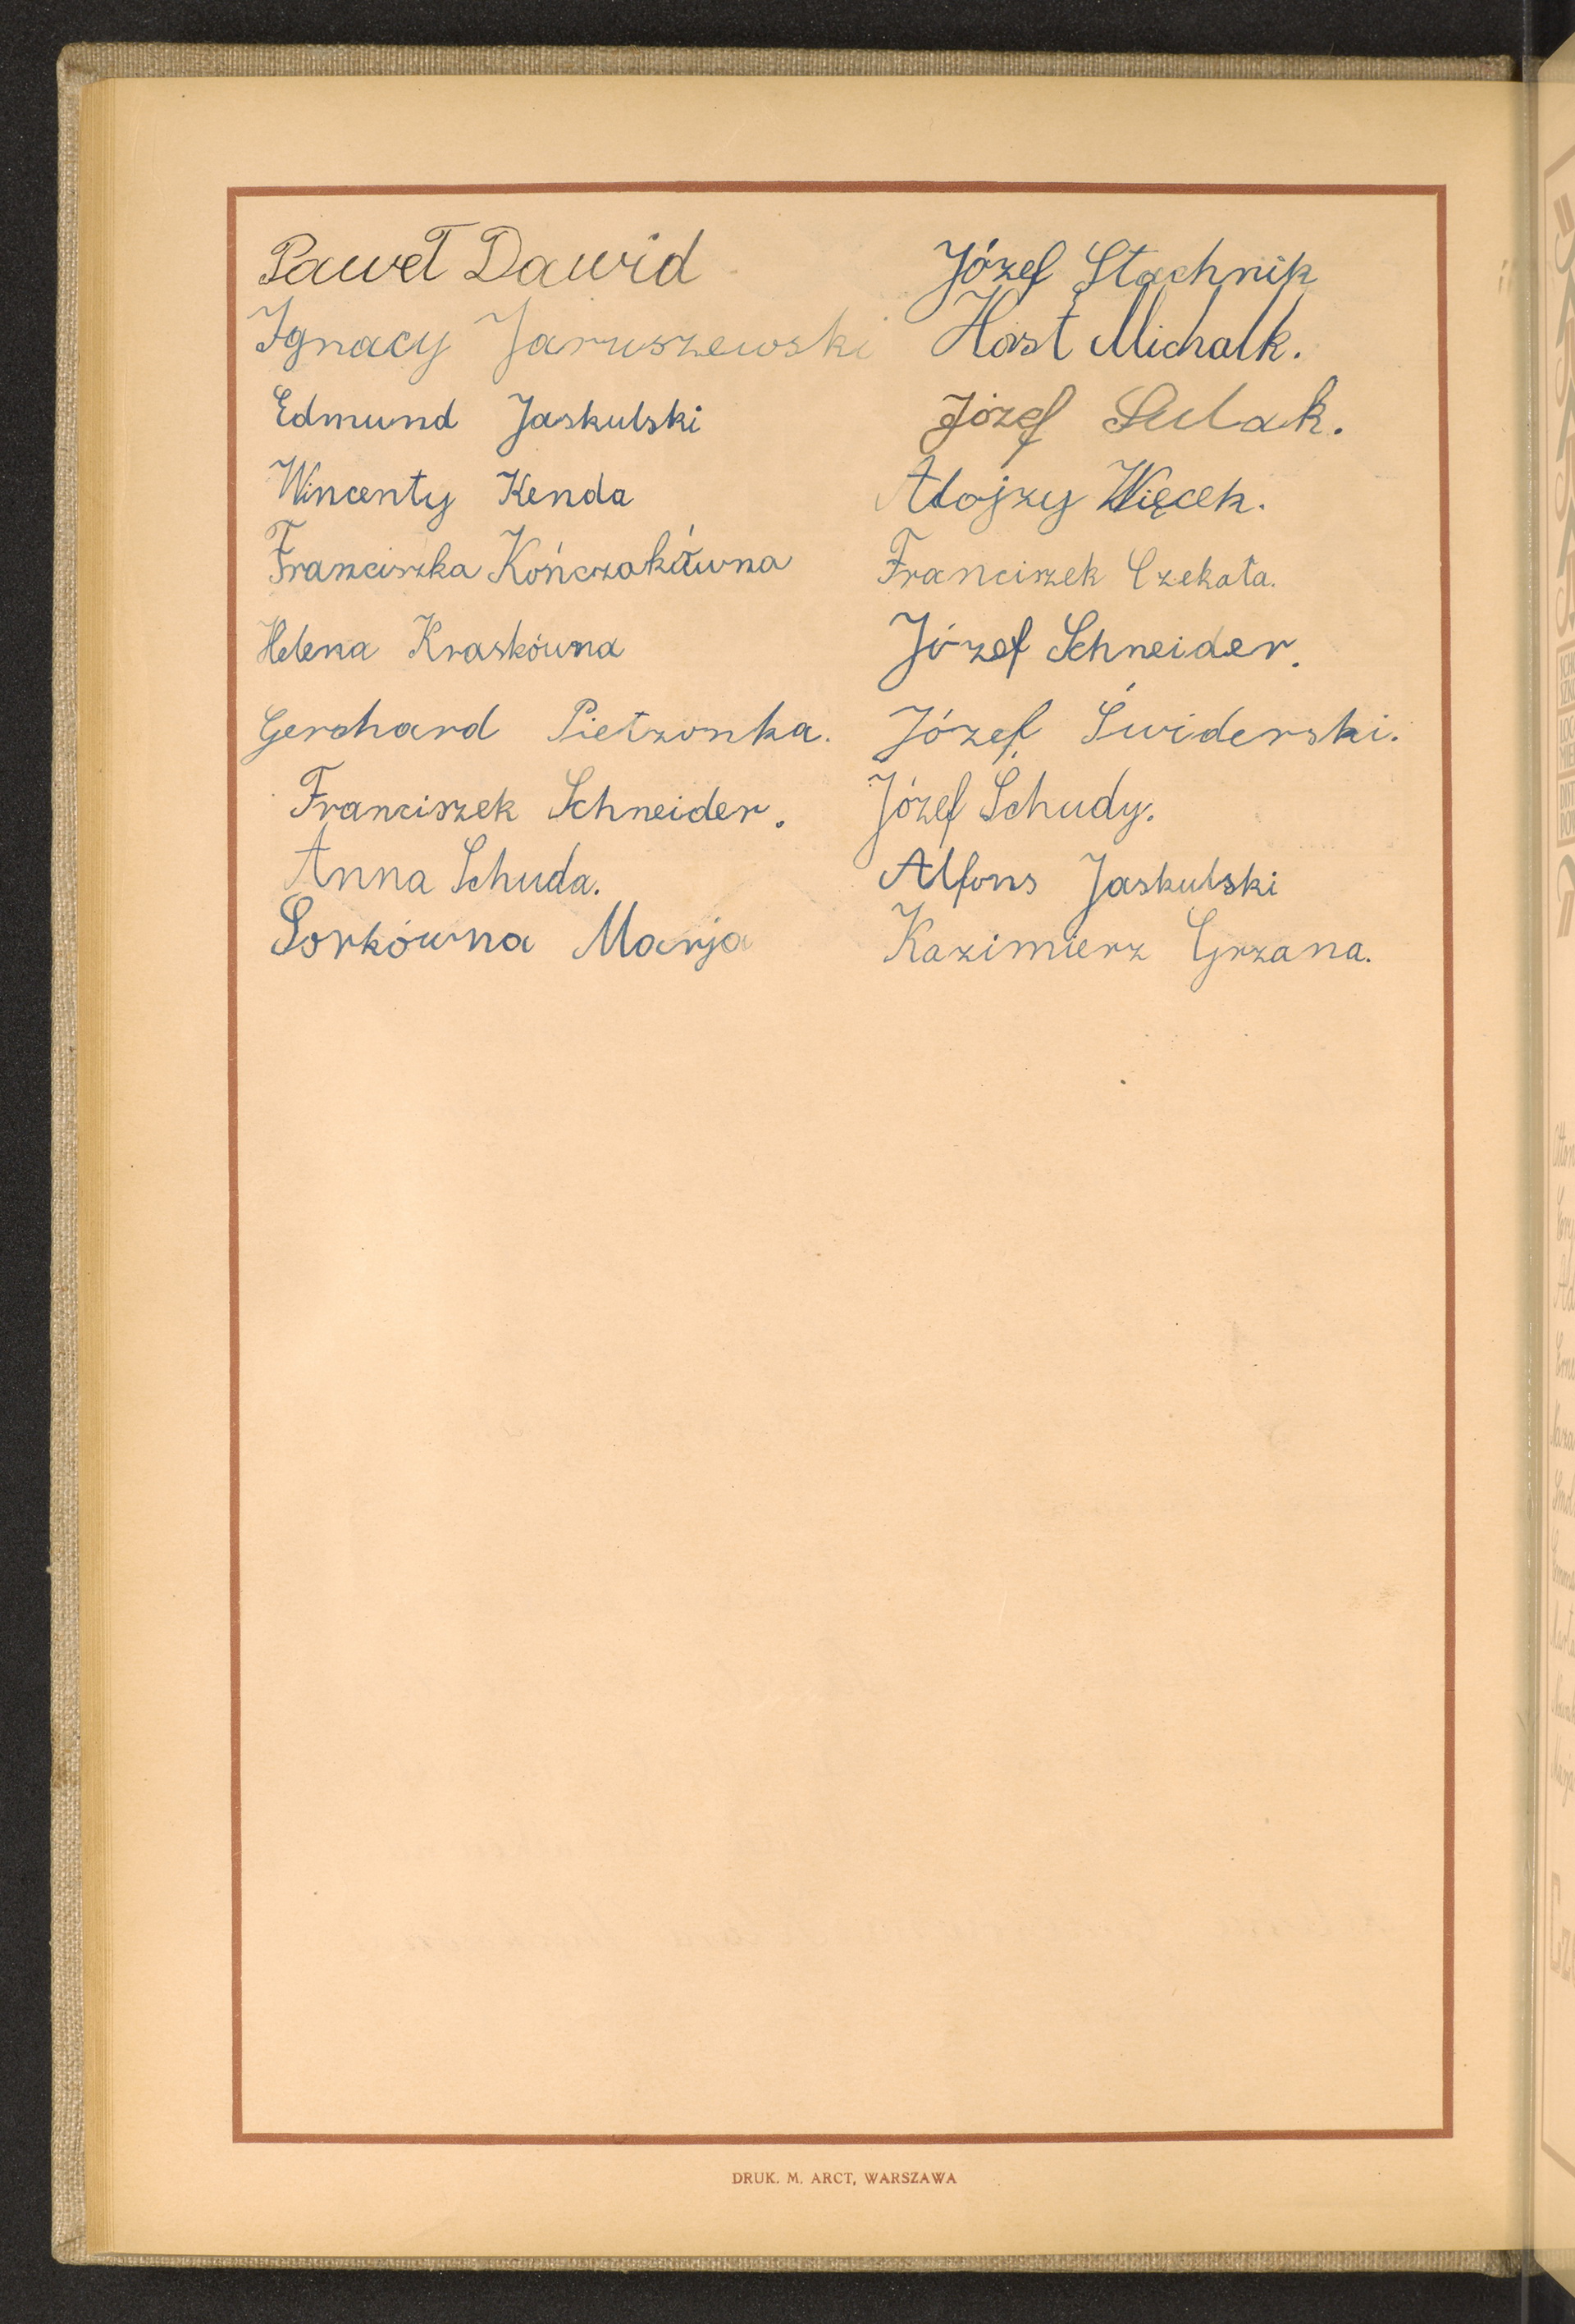 Paweł Dawid
Ignacy Jaruszewski
Edmund Jaskulski
Wincenty Kenda
Franciszka Kończakówna
Helena Kraskówna
Gerhard Pietzonka.
Franciszek Schneider.
Anna Schuda.
Sorkówna Marja
Józef Stachnik
Host Michalk.
Józef Sulak.
Alojzy Więcek.
Franciszek Czekała.
Józef Schneider.
Józef Świderski.
Józef Schudy.
Alfons Jaskulski
Kazimierz Grzana.
DRUK. M. ARCT, WARSZAWA